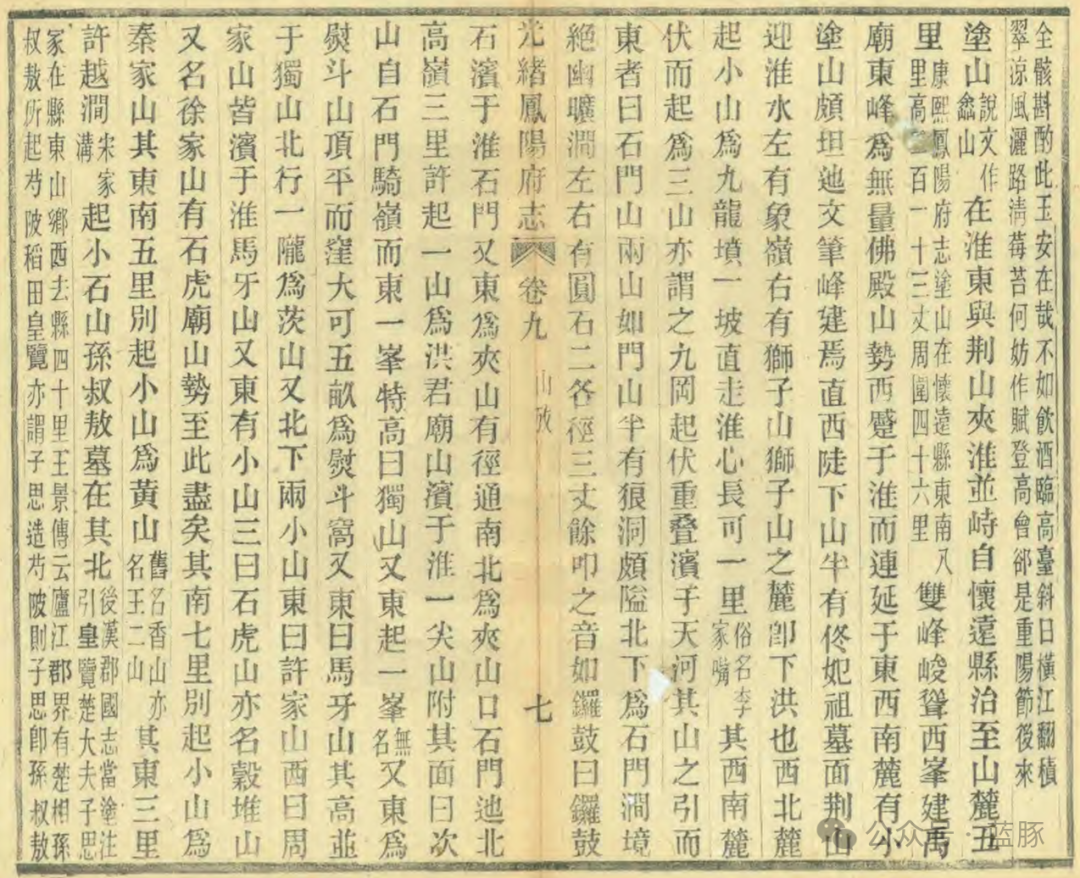 全骸斟酌此玉安在哉不如飲酒臨高臺斜日橫江翻積
翠涼風灑路淸莓苔何妨作賦登高會郤是重陽節後來
塗山說文作嵞山在淮東與荆山夾淮並峙自懷遠縣治至山麓五
里康熙鳳陽府志塗山在懷遠縣東南八里高百一十三丈周圍四十六里雙峰峻聳西峯建禹
廟東峰爲無量佛殿山勢西蹙于淮而連延于東西南麓有小
塗山頗坦迆文筆峰建焉直西陡下山半有佟妃祖墓面荆山
迎淮水左有象嶺右有獅子山獅子山之麓卽下洪也西北麓
起小山爲九龍墳一坡直走淮心長可一里俗名李家嘴其西南麓
伏而起爲三山亦謂之九岡起伏重叠濱于天河其山之引而
東者曰石門山兩山如門山半有狼洞頗隘北下爲石門澗境
絶幽曠澗左右有圓石二各徑三丈餘叩之音如鑼鼓曰鑼鼓
光緖鳳陽府志 卷九 山攷 七
石濱于淮石門又東爲夾山有徑通南北爲夾山口石門迆北
高嶺三里許起一山爲洪君廟山濱于淮一尖山附其面曰次
山自石門騎嶺而東一峯特高曰獨山又東起一峯無名又東爲
熨斗山頂平而窪大可五畝爲熨斗窩又東曰馬牙山其高並
于獨山北行一隴爲茨山又北下兩小山東曰許家山西曰周
家山皆濱于淮馬牙山又東有小山三曰石虎山亦名穀堆山
又名徐家山有石虎廟山勢至此盡矣其南七里別起小山爲
秦家山其東南五里別起小山爲黃山舊名香山亦名王二山其東三里
許越澗宋家溝起小石山孫叔敖墓在其北後漢郡國志當塗注引皇覽楚大夫子思
冢在縣東山鄉西去縣四十里王景傳云廬江郡界有楚相孫
叔敖所起芍陂稻田皇覽亦謂子思造芍陂則子思卽孫叔敖
公众号 蓝豚